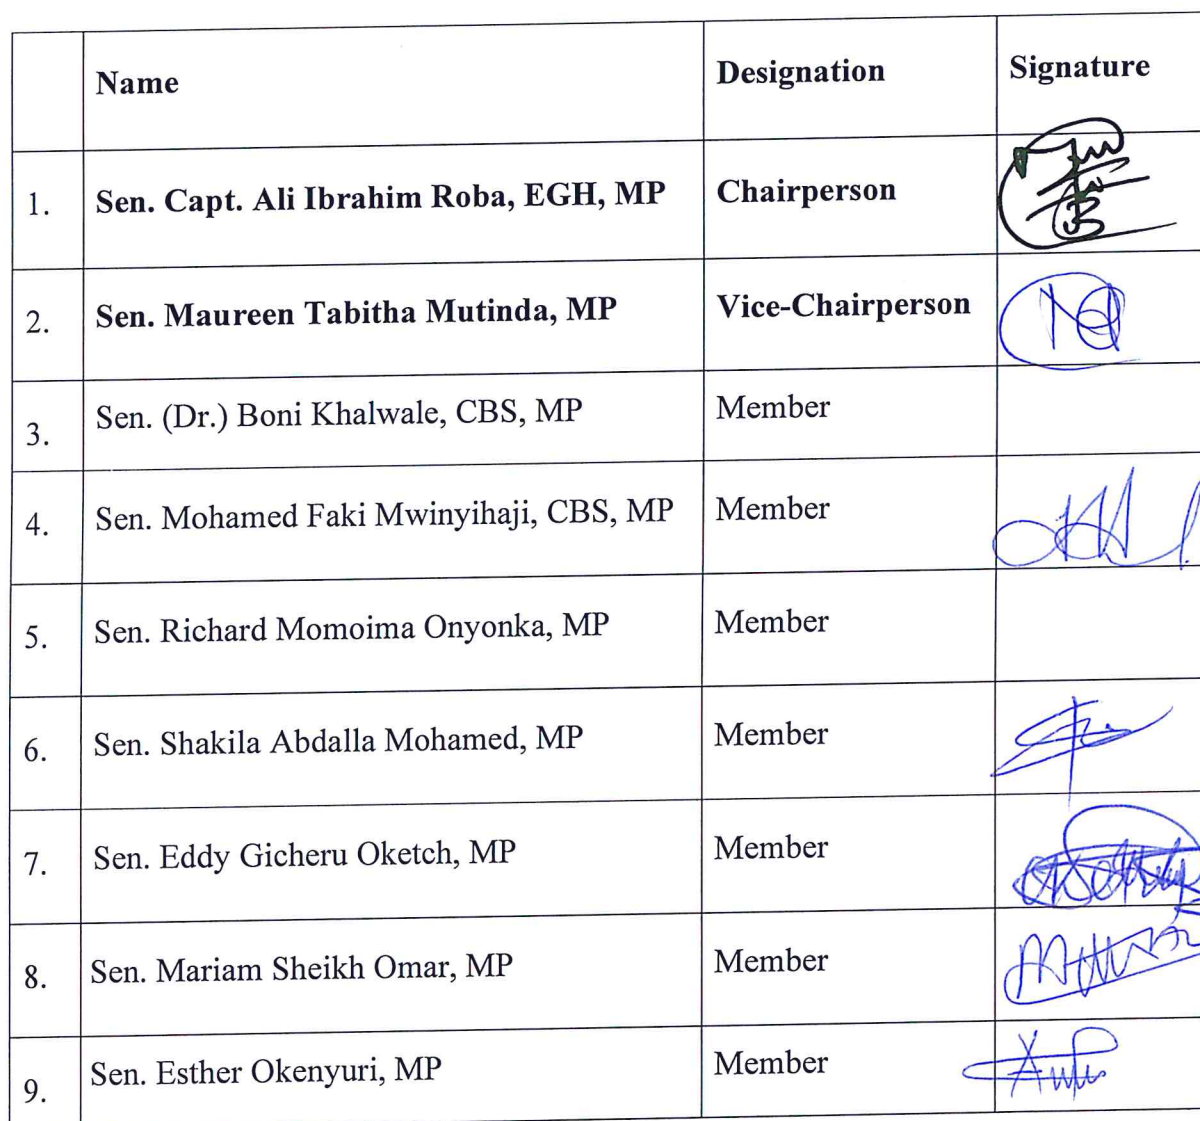 Name Designation Signature
1. Sen. Capt. Ali Ibrahim Roba, EGH, MP Chairperson
2. Sen. Maureen Tabitha Mutinda, MP Vice-Chairperson
3. Sen. (Dr.) Boni Khalwale, CBS, MP Member
4. Sen. Mohamed Faki Mwinyihaji, CBS, MP Member
5. Sen. Richard Momoima Onyonka, MP Member
6. Sen. Shakila Abdalla Mohamed, MP Member
7. Sen. Eddy Gicheru Oketch, MP Member
8. Sen. Mariam Sheikh Omar, MP Member
9. Sen. Esther Okenyuri, MP Member